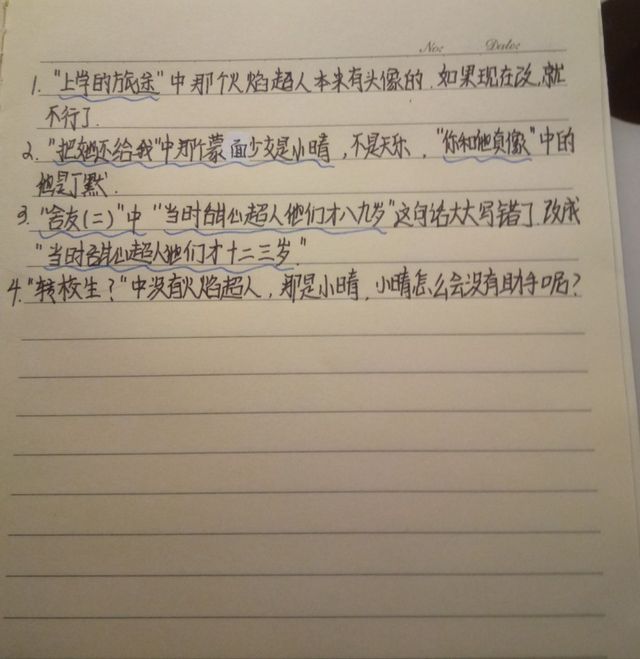 No: Date:
1. "上学的旅途"中那个火焰超人本来有头像的.如果现在改,就
不行了.
2. "把她还给我"中那个蒙面少女是小晴,不是天乐,"你和他真像"中的
他是丁默.
3. "舍友(二)"中"当时甜心超人他们才八九岁"这句话大大写错了.改成
"当时甜心超人他们才十二三岁."
4. "转校生?"中没有火焰超人,那是小晴,小晴怎么会没有助手呢?